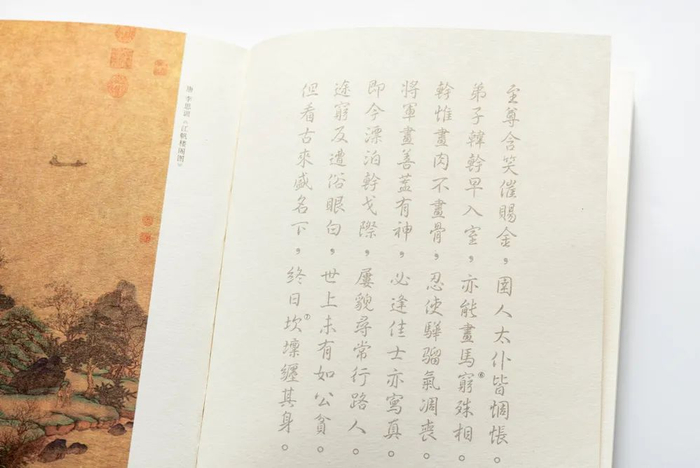 至尊含笑催賜金，圉人太仆皆惆悵。
弟子韓幹早入室，亦能畫馬⑥窮殊相。
幹惟畫肉不畫骨，忍使驊騮氣凋喪。
將軍畫善蓋有神，必逢佳士亦寫真。
即今漂泊幹戈際，屢貌尋常行路人。
途窮反遭俗眼白，世上未有如公貧。
但看古來盛名下，終日⑦坎壈纏其身。
唐 李思训《江帆楼阁图》